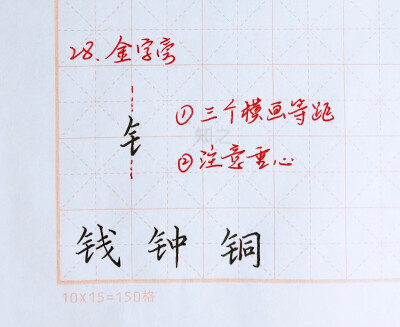 28. 金字旁
① 三个横画等距
钅
② 注意重心
知之
钱 钟 铜
10×15=150格